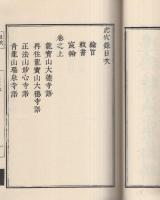 虎穴錄目次
綸旨
敕書
宸翰
卷之上
龍寶山大德寺語
再住龍寶山大德寺語
正法山妙心寺語
青龍山瑞泉寺語